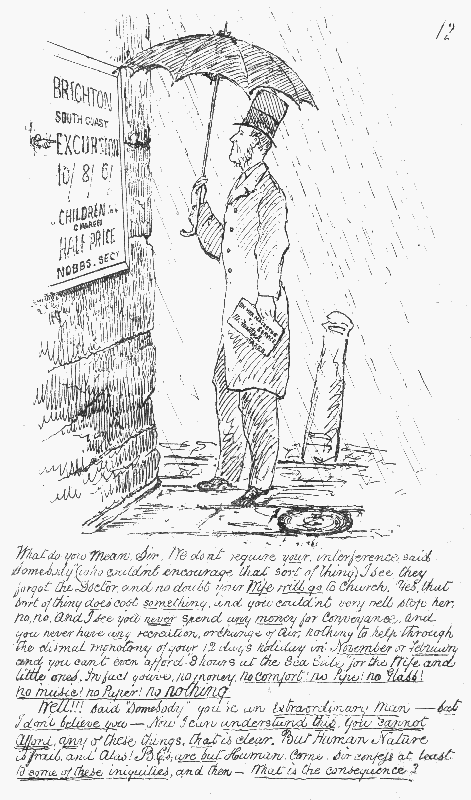 12
BRIGHTON
SOUTH COAST
EXCURSION
10/ 8/ 6/
CHILDREN
CHARGED
HALF PRICE
NOBBS. SECY
What do you mean, Sir, We dont require your interference, said
Somebody (who couldnt encourage that sort of thing) I see they
forgot the Doctor, and no doubt your Wife will go to Church. Yes, that
sort of thing does cost something, and you couldn't very well stop her,
no, no, And I see you never spend any money for Conveyance, and
you never have any recreation, or change of Air, nothing to help through
the dismal monotony of your 12 days holiday in November or February
and you can't even afford 8 hours at the Sea Side, for the Wife and
little ones. In fact you've, no money, no comfort! no Pipe! no Glass!
no music! no Paper! no nothing
Well!!! said "Somebody" you're an Extraordinary Man — but
I don't believe you — Now I can understand this, You cannot
Afford, any of these things, that is clear. But Human Nature
is frail, and Alas! are but Human. Come Sir confess at least
to some of these iniquities, and then — What is the consequence?